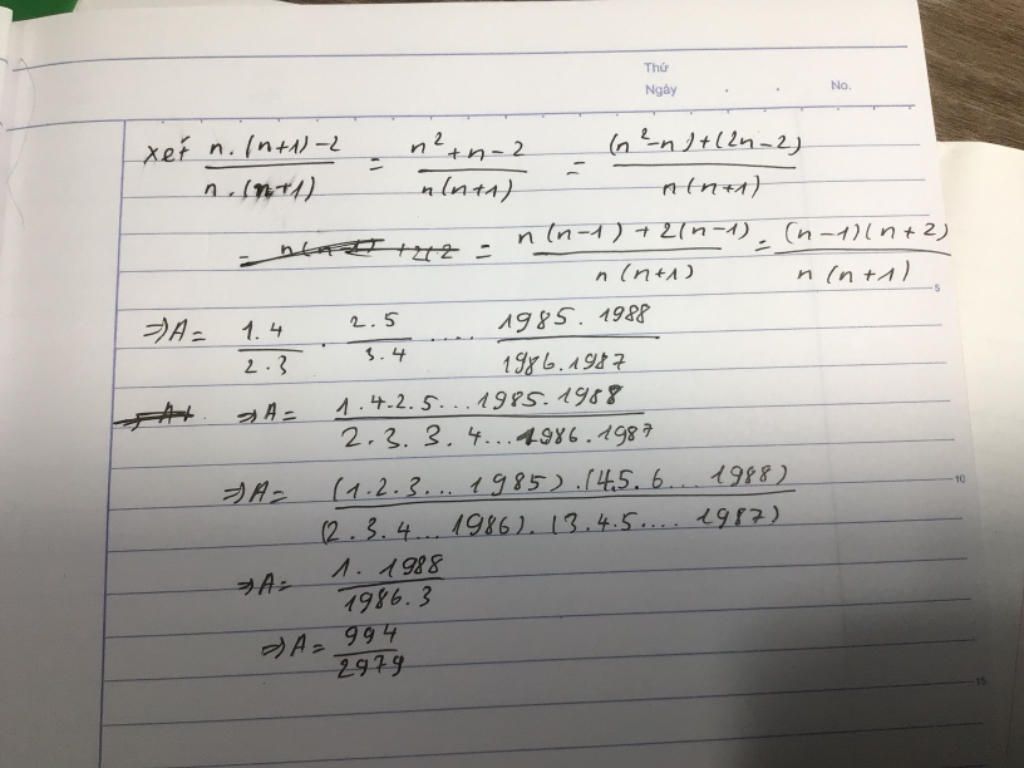 Thứ
Ngày . . No.
xét n.(n+1)-2 / n.(n+1) = n²+n-2 / n(n+1) = (n²-n)+(2n-2) / n(n+1)
= n(n-1)+2(n-1) / n(n+1) = (n-1)(n+2) / n(n+1)
5
⇒A= 1.4 / 2.3 . 2.5 / 3.4 .... 1985.1988 / 1986.1987
⇒A= 1.4.2.5...1985.1988 / 2.3.3.4...1986.1987
⇒A= (1.2.3...1985).(4.5.6...1988) / (2.3.4...1986).(3.4.5....1987)
10
⇒A= 1.1988 / 1986.3
⇒A= 994 / 2979
15